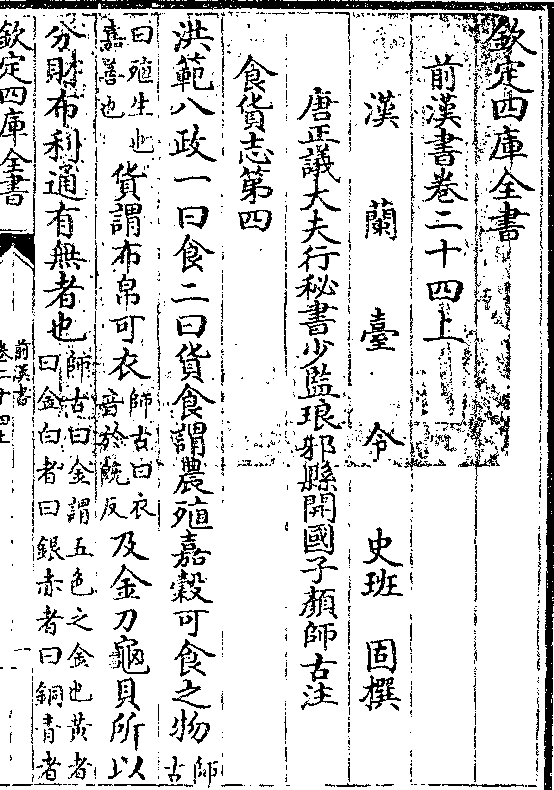 欽定四庫全書
前漢書卷二十四上
漢蘭臺令史班固撰
唐正議大夫行秘書少監琅邪縣開國子顏師古注
食貨志第四
洪範八政一曰食二曰貨食謂農殖嘉穀可食之物師古
曰殖生也嘉善也貨謂布帛可衣師古曰衣音於既反及金刀龜貝所以
分財布利通有無者也師古曰金謂五色之金也黃者曰金白者曰銀赤者曰銅青者
欽定四庫全書
前漢書
卷二十四上
一